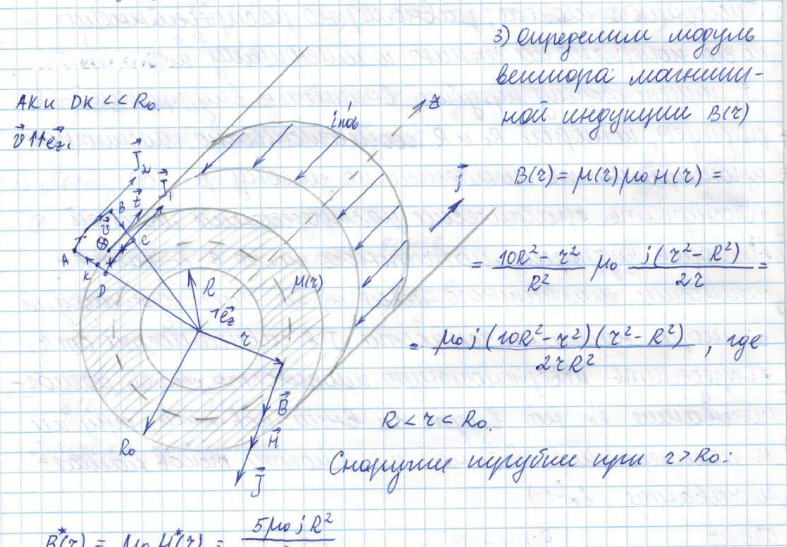 3) Определим модуль
вектора магнит-
ной индукции B(r)
AK и DK << R₀.
v⃗ ↑↑ e⃗z.
i'пов
z
j⃗
J⃗₂
J⃗₁
B
τ⃗
ν⃗
C
A
K
D
R
μ(r)
e⃗z
r
R₀
B⃗
H⃗
J⃗
B(r) = μ(r)μ₀H(r) =
= (10R² - r²)/R² μ₀ j(r² - R²)/2r =
= μ₀j(10R² - r²)(r² - R²)/2rR², где
R < r < R₀.
Снаружи трубки при r > R₀:
B*(r) = μ₀H*(r) = 5μ₀jR²